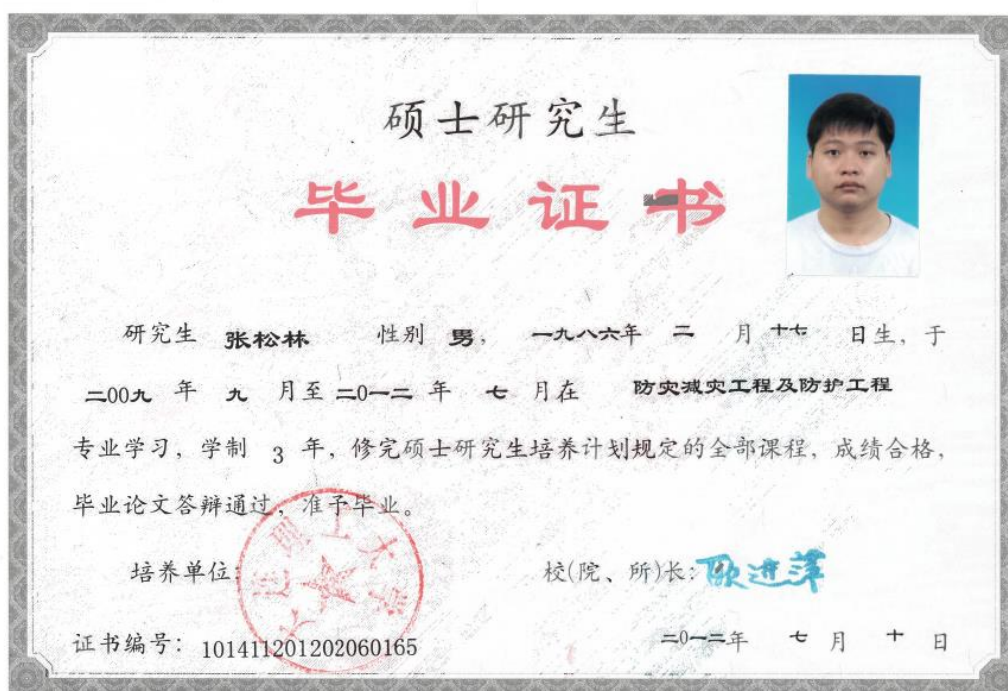 硕士研究生
毕业证书
研究生 张松林 性别 男, 一九八六年 二 月 十七 日生, 于
二00九 年 九 月至 二0一二 年 七 月在 防灾减灾工程及防护工程
专业学习, 学制 3 年, 修完硕士研究生培养计划规定的全部课程, 成绩合格,
毕业论文答辩通过, 准予毕业。
大连理工大学
培养单位: 校(院、所)长: 欧进萍
证书编号: 101411201202060165 二0一二年 七 月 十 日